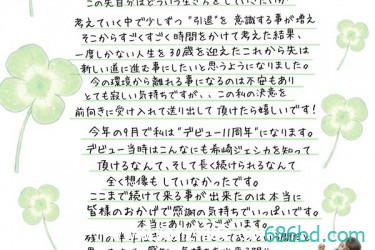 この先自分はどういう生き方をしていきたいか
考えていく中で少しずつ"引退"を意識する事が増え
そこからすごくすごく時間をかけて考えた結果、
一度しかない人生を30歳を迎えたこれから先は
新しい道に進む事にしたいと思うようになりました。
今の環境から離れる事になるのは不安もあり
とても寂しい気持ちですが、、この私の決意を
前向きに受け入れて送り出して頂けたら嬉しいです!
今年の9月で私は"デビュー11周年"になります。
デビュー当時はこんなにも希崎ジェシカを知って
頂けるなんて、そして長く続けられるなんて
全く想像もしていなかったです。
ここまで続けて来る事が出来たのは本当に
皆様のおかげで感謝の気持ちでいっぱいです。
本当にありがとうございます。
残りの